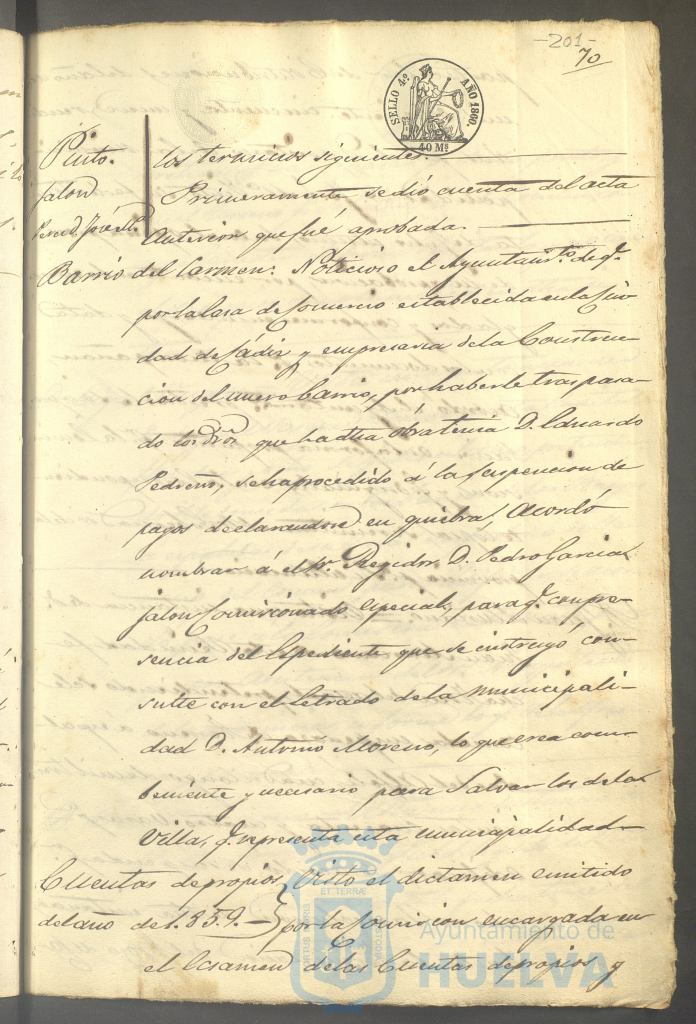 -201-
70
SELLO 4º AÑO 1860.
40 Mˢ
Pinto.
Jalon
Perez D. José Mª
los terminos siguientes.
Primeramente se dió cuenta del acta
anterior que fué aprobada.
Barrio del Carmen. Noticioso el Ayuntamᵗᵒ de qᵉ
por la Casa de Comercio establecida en la Ciu-
dad de Cádiz y empresaria de la Construc-
cion del nuevo barrio, por haberle traspasa-
do los drõs que ha dha obra tenia D. Eduardo
Pedreño, se ha procedido á la suspencion de
pagos declarandose en quiebra, Acordó
nombrar á el Sr. Regidor D. Pedro Garcia
Jalon Comisionado especial, para qᵉ con pre-
sencia del Espediente que se instruyó con-
sulte con el letrado de la municipali-
dad D. Antonio Moreno, lo que crea com-
beniente y necesario para Salvar los de la
Villa, qᵉ representa esta municipalidad
Cuentas de propios
del año de 1.859.
Visto el dictamen emitido
por la Comicion encargada en
el Ecsamen de las Cuentas de propios y
Ayuntamiento de
HUELVA
ET TERRÆ